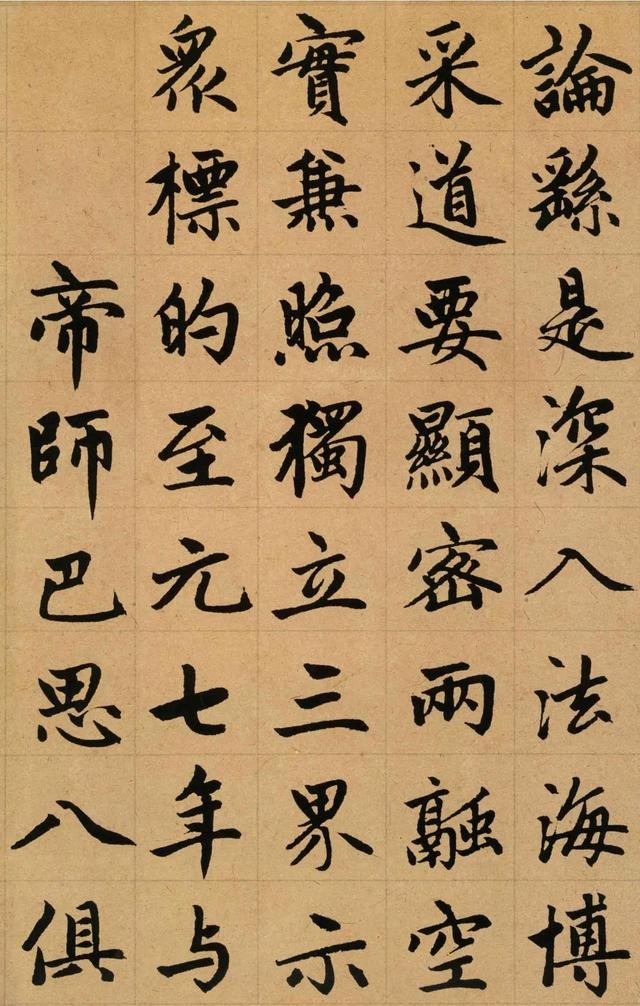 論繇是深入法海博
采道要顯密兩融空
實兼照獨立三界示
衆標的至元七年与
帝師巴思八俱